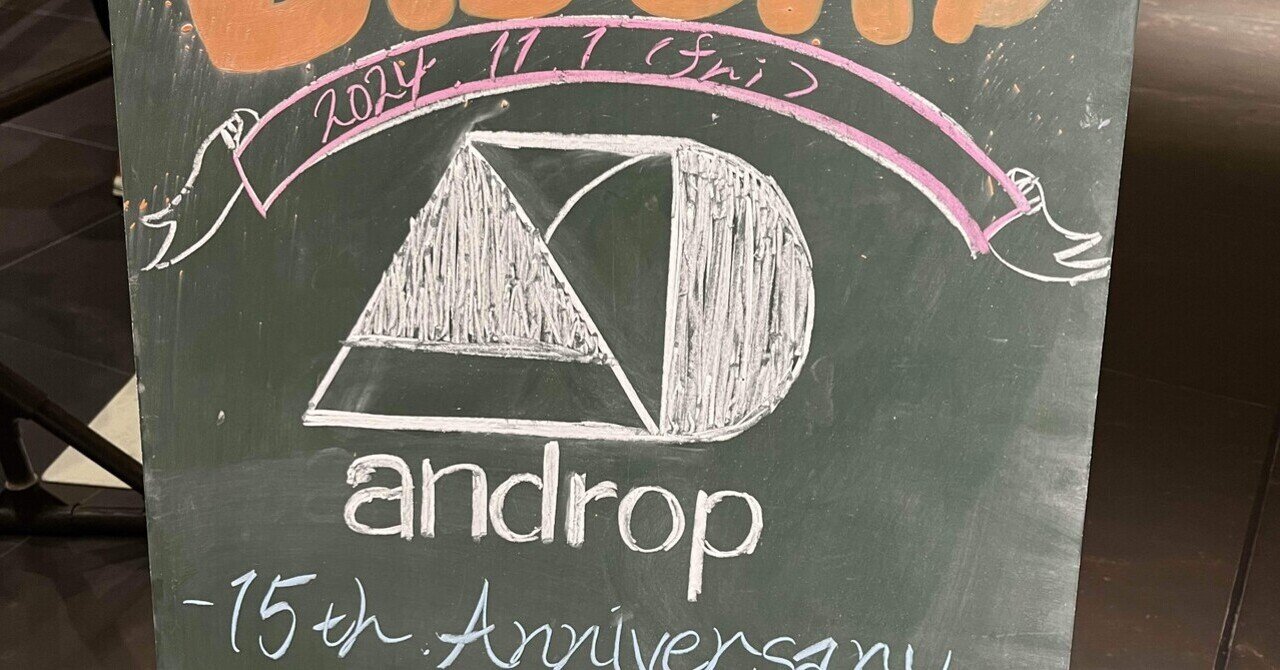 2024.11.1 (fri)
androp
-15th Anniversary